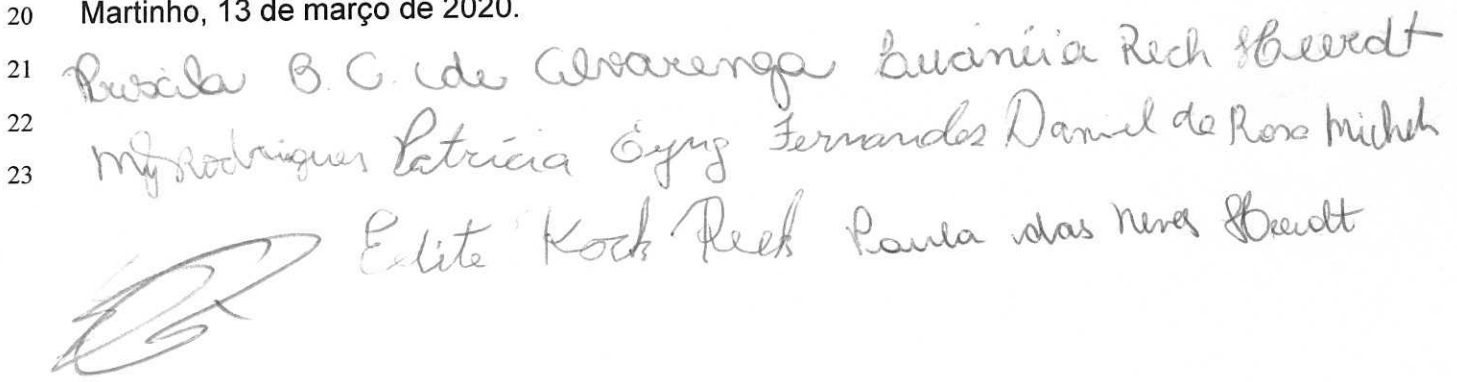 20 Martinho, 13 de março de 2020.
21 Priscila B. C. de Alvarenga Lucinéia Rech Heerdt
22 Rodrigues Patrícia Eyng Fernandes Daniel da Rosa Michels
23
Edite Kock Rech Paula das Neves Heerdt